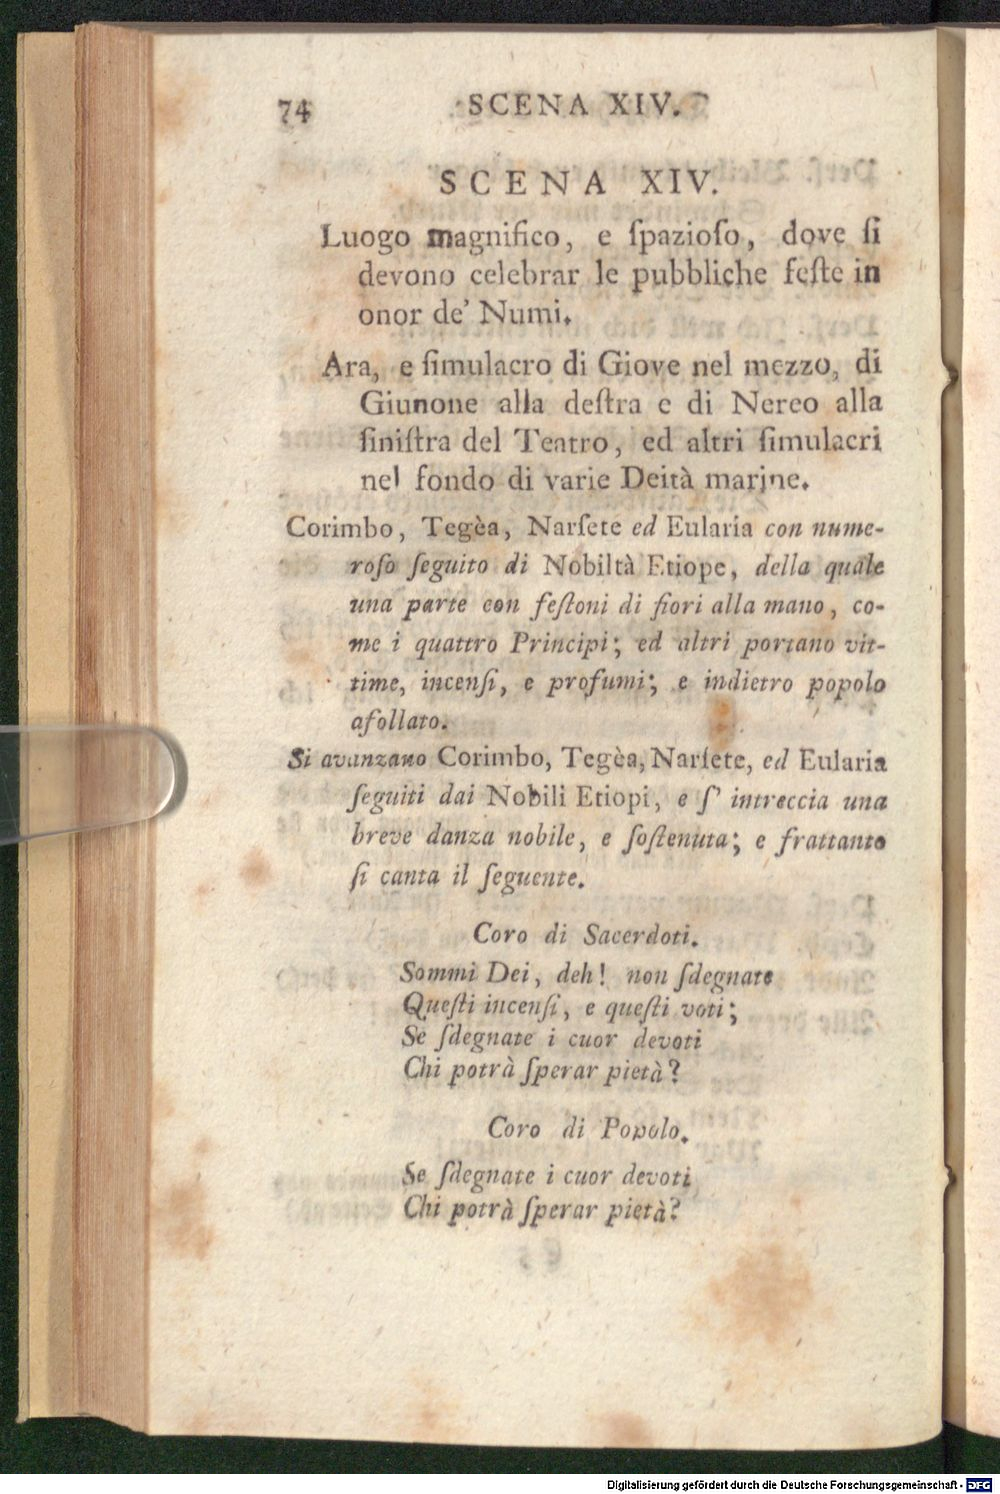 74 SCENA XIV.
SCENA XIV.
Luogo magnifico, e ſpazioſo, dove ſi
devono celebrar le pubbliche feſte in
onor de' Numi.
Ara, e ſimulacro di Giove nel mezzo, di
Giunone alla deſtra e di Nereo alla
ſiniſtra del Teatro, ed altri ſimulacri
nel fondo di varie Deità marine.
Corimbo, Tegèa, Narſete ed Eularia con nume-
roſo ſeguito di Nobiltà Etiope, della quale
una parte con feſtoni di fiori alla mano, co-
me i quattro Principi; ed altri portano vit-
time, incenſi, e profumi; e indietro popolo
afollato.
Si avanzano Corimbo, Tegèa, Narſete, ed Eularia
ſeguiti dai Nobili Etiopi, e ſ' intreccia una
breve danza nobile, e ſoſtenuta; e frattanto
ſi canta il ſeguente.
Coro di Sacerdoti.
Sommi Dei, deh! non ſdegnate
Queſti incenſi, e queſti voti;
Se ſdegnate i cuor devoti
Chi potrà ſperar pietà?
Coro di Popolo.
Se ſdegnate i cuor devoti
Chi potrà ſperar pietà?
Digitalisierung gefördert durch die Deutsche Forschungsgemeinschaft - DFG